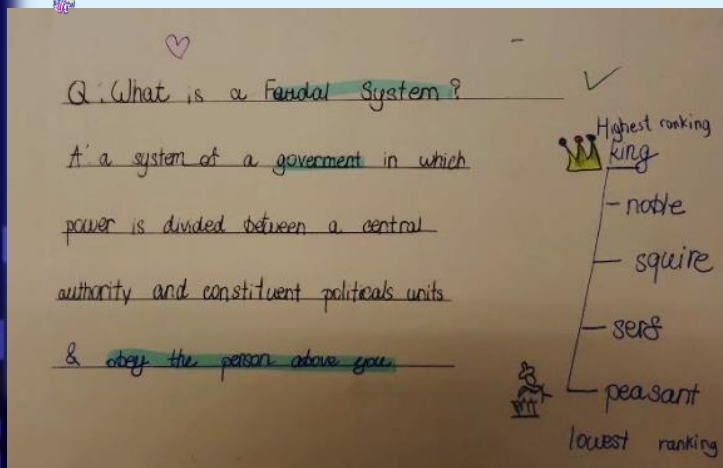 Q: What is a Feudal System?
A: a system of a goverment in which
power is divided between a central
authority and constituent politicals units
& obey the person above you
Highest ranking
king
- noble
- squire
- serf
- peasant
lowest ranking